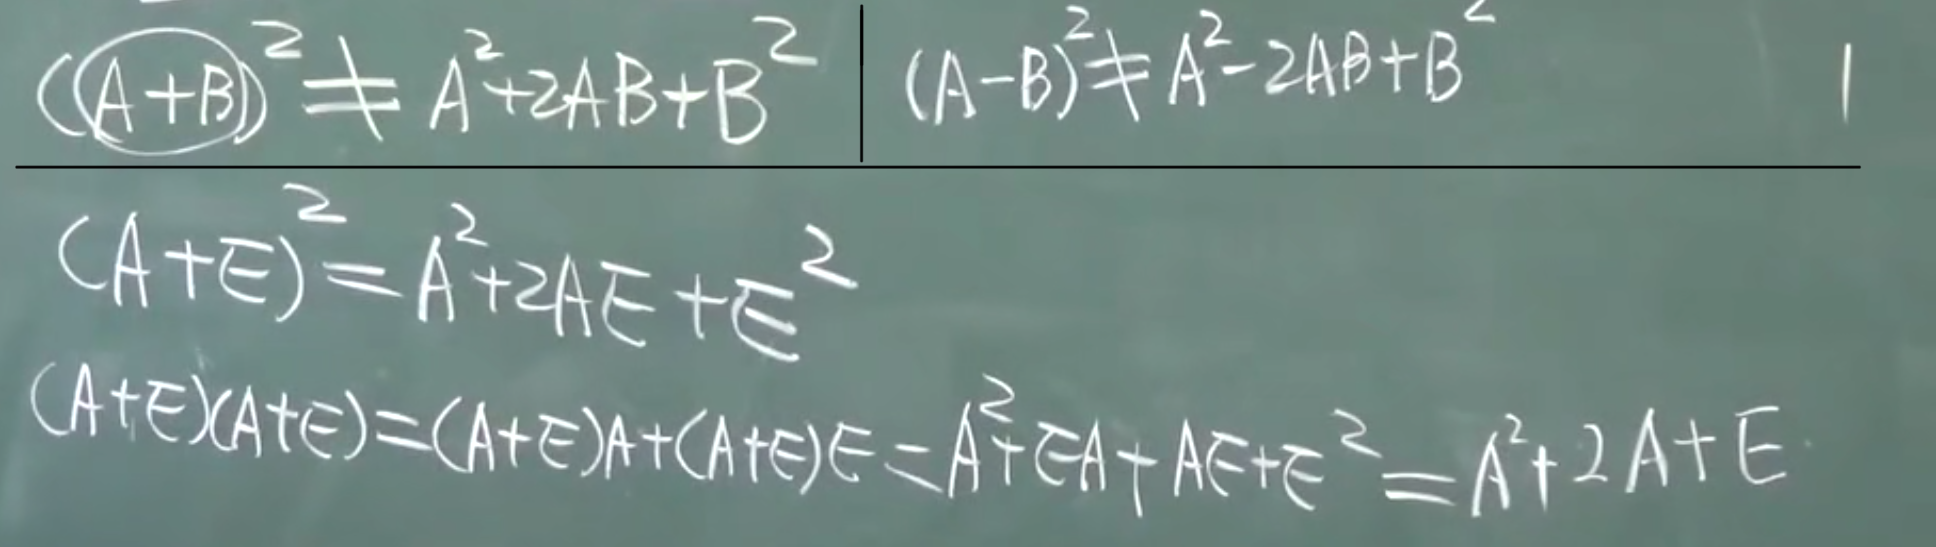 (A+B)² ≠ A²+2AB+B² | (A-B)² ≠ A²-2AB+B²
(A+E)² = A²+2AE+E²
(A+E)(A+E)=(A+E)A+(A+E)E=A²+EA+AE+E²=A²+2A+E